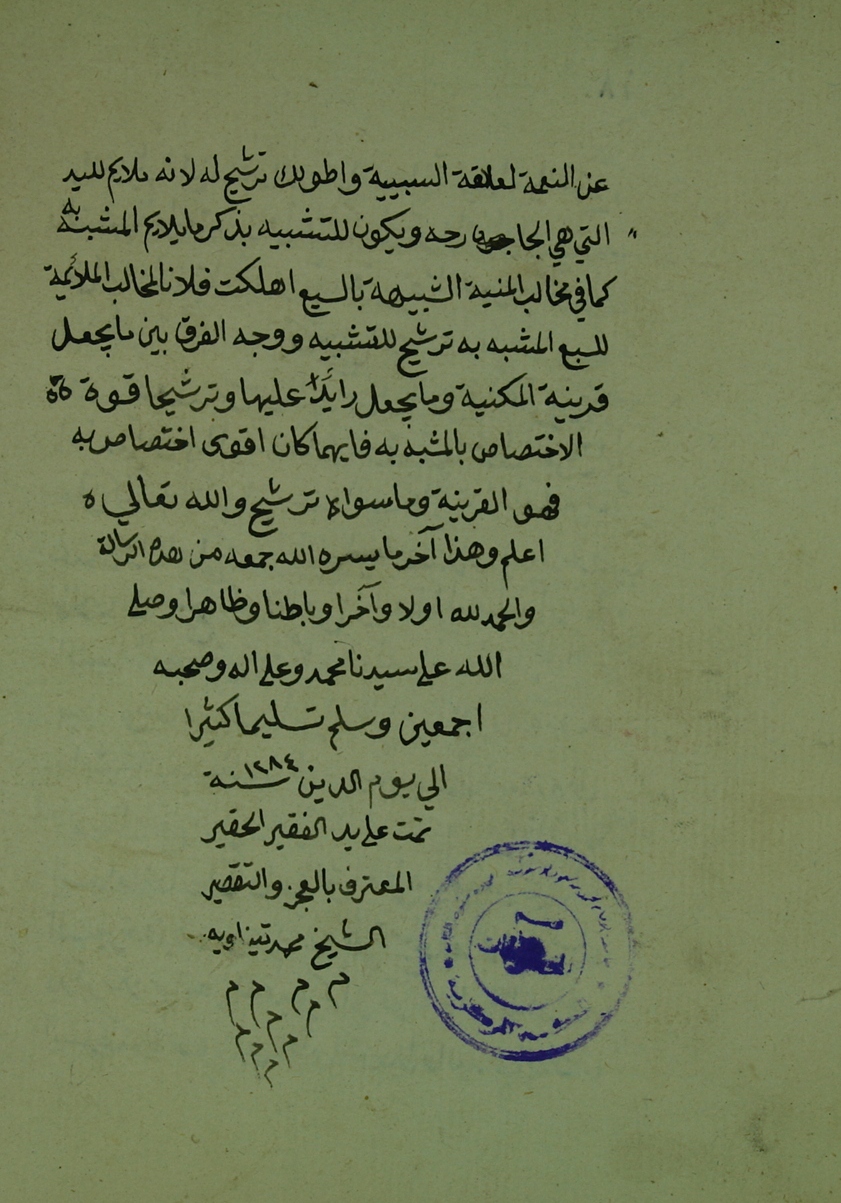 عن النعمة لعلاقة السببية واطولك ترشيح له لانه ملايم لليد
التي هي الجارحه ويكون للتشبيه بذكر ما يلايم المشبه به
كما في مخالب المنية الشبيهة بالسبع اهلكت فلانا المخالب الملائمية
للسبع المشبه به ترشيح للتشبيه ووجه الفرق بين ما يجعل
قرينة المكنية وما يجعل زايدًا عليها وترشيحا قوة
الاختصاص بالمشبه به فايهما كان اقوى اختصاص به
فهو القرينة وما سواه ترشيح والله تعالي
اعلم وهذا آخر ما يسره الله جمعه من هذه الرسالة
والحمد لله اولا وآخرا وباطنا وظاهرا وصلي
الله علي سيدنا محمد وعلي اله وصحبه
اجمعين وسلم تسليما كثيرا
الي يوم الدين سنة ١٢٨٤
تمت علي يد الفقير الحقير
المعترف بالعجز والتقصير
الشيخ محمد
م م م م
م م م
م م م